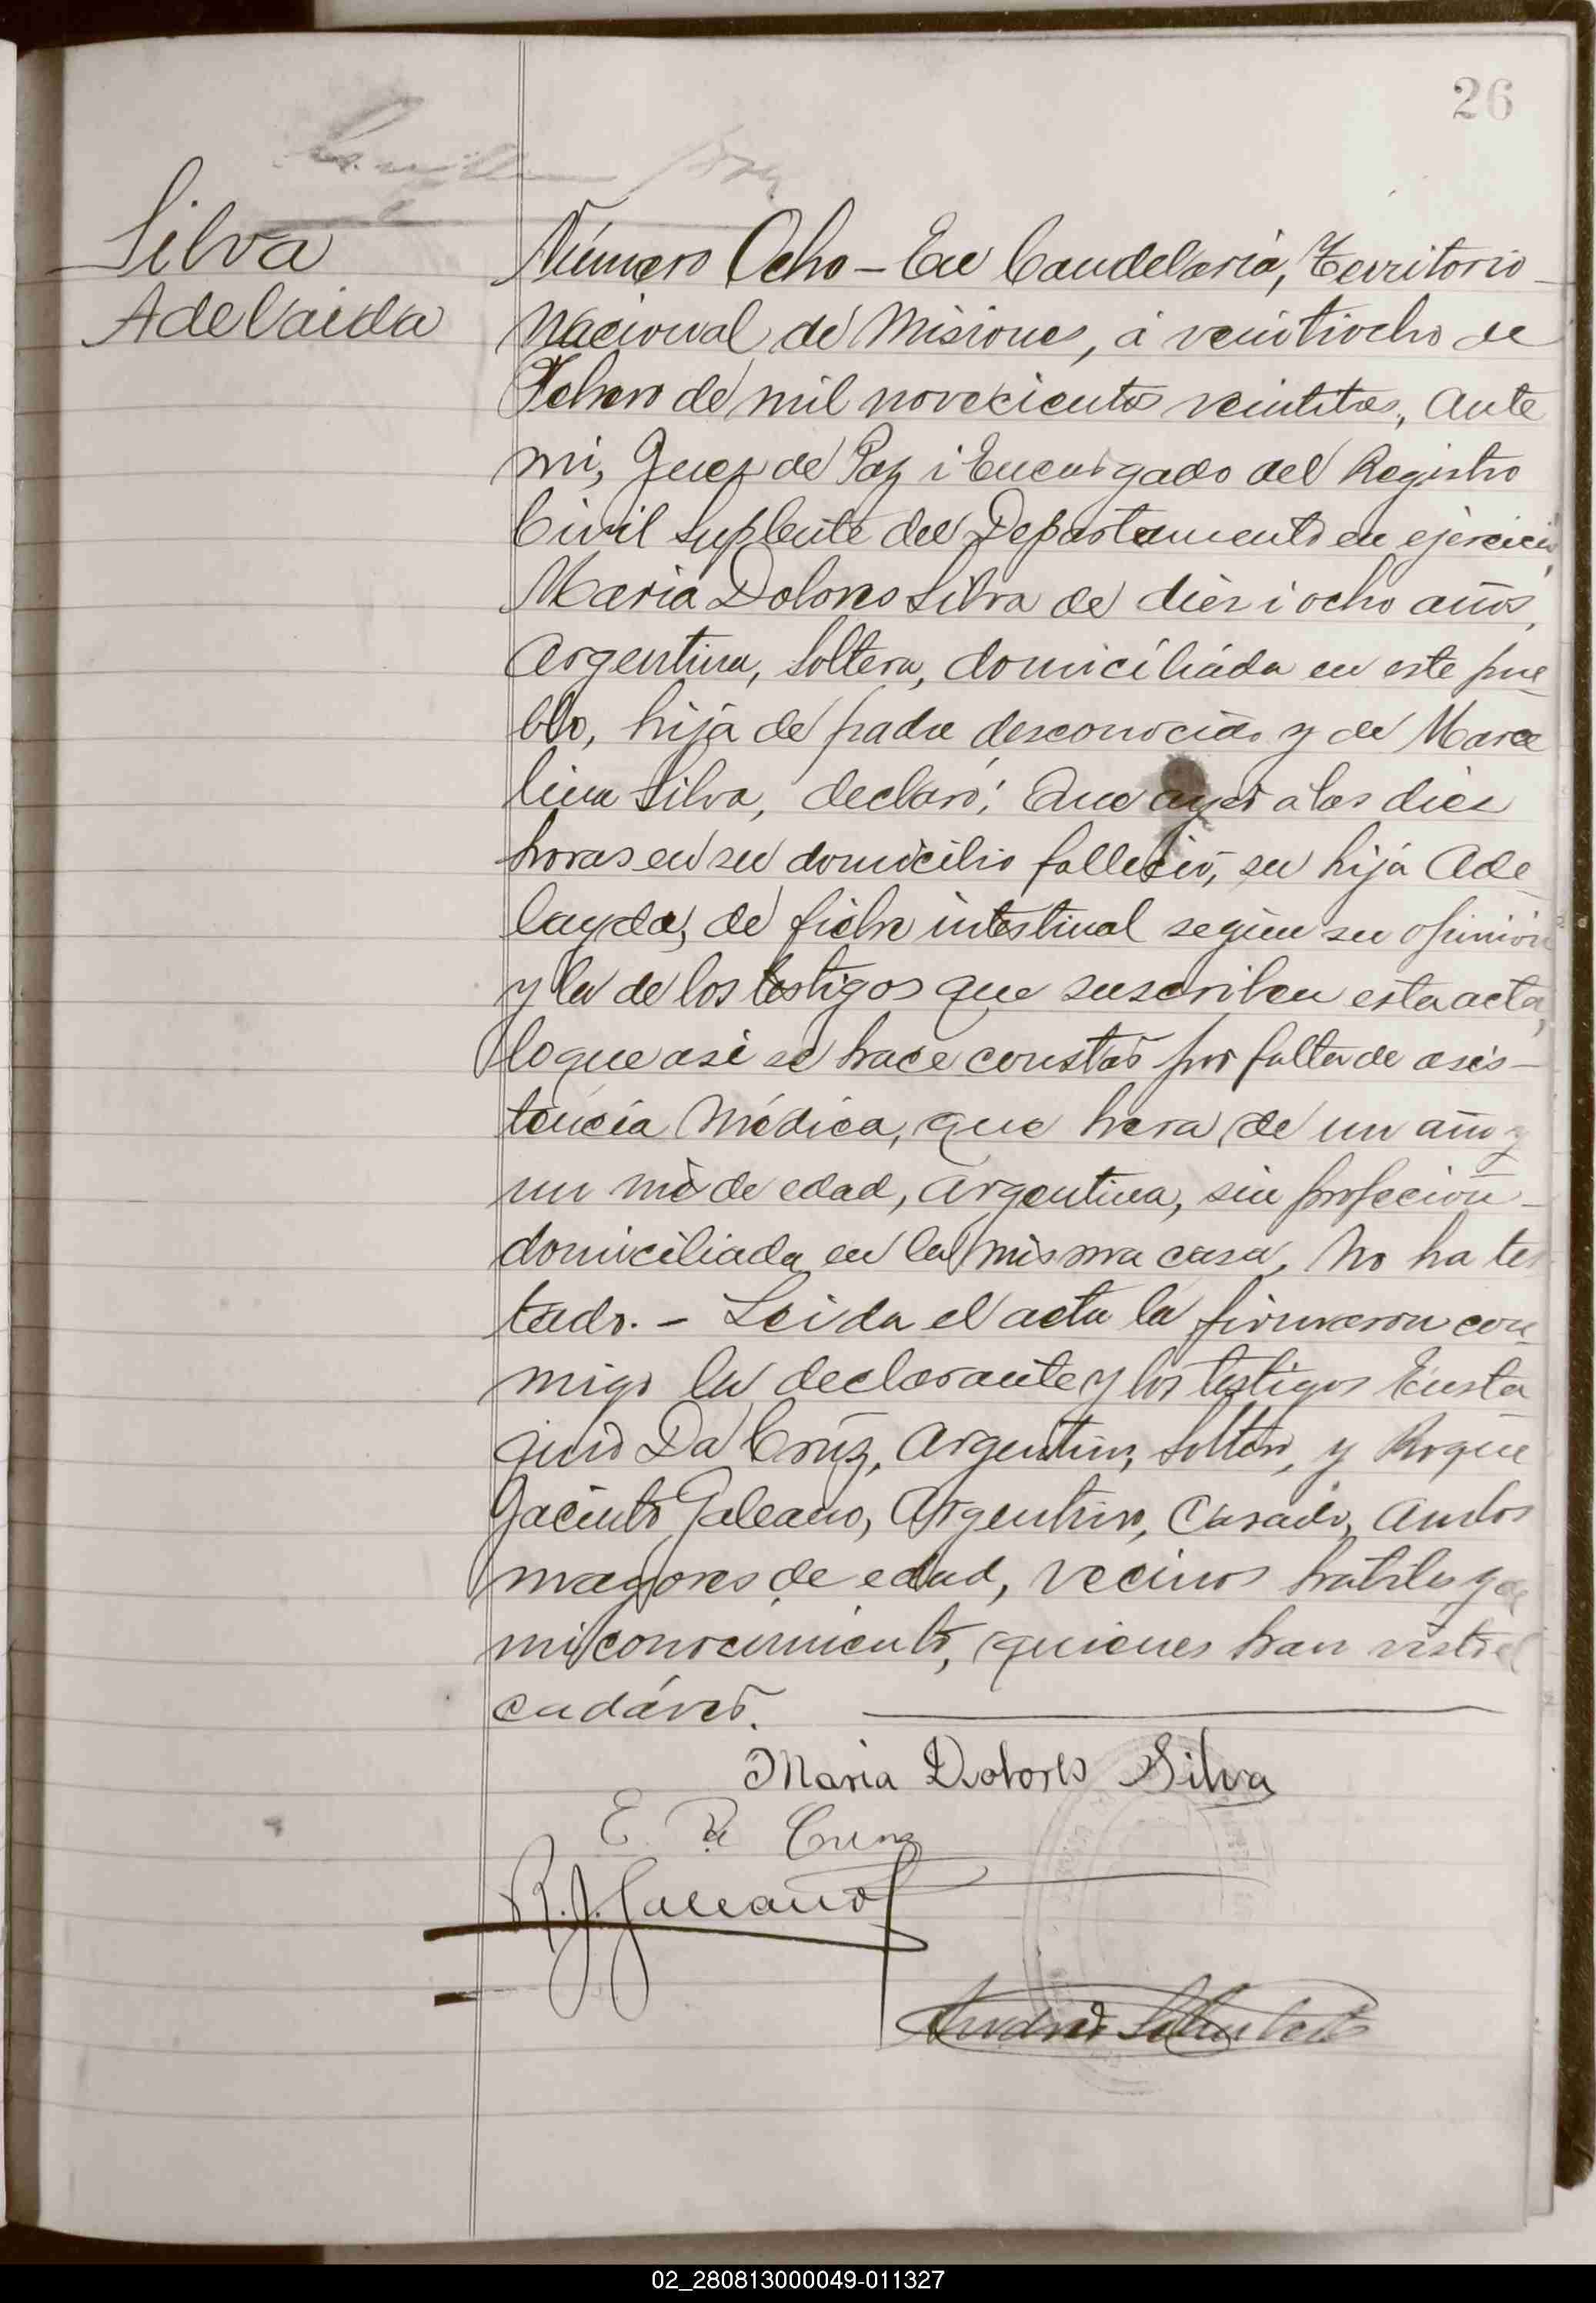 26
Silva
Adelaida
Número Ocho – En Candelaria, Territorio
Nacional de Misiones, á veintiocho de
Febrero de mil novecientos veintitres, Ante
mi, Juez de Paz i Encargado del Registro
Civil Suplente del Departamento en ejercicio,
Maria Dolores Silva de diez i ocho años,
Argentina, Soltera, domiciliada en este pue
blo, hija de padre desconocido y de Marce
lina Silva, declaró: Que ayer a las diez
horas en su domicilio falleció, su hija Ade
layda, de fiebre intestinal según su opinión
y la de los testigos que suscriben esta acta,
lo que asi se hace constar por falta de asis–
tencia Médica, que hera de un año y
un mes de edad, Argentina, sin profeción
domiciliada en la misma casa, No ha tes
tado. – Leida el acta la firmaron con
migo la declarante y los testigos Eusta
quio Da Cruz, Argentino, Soltero, y Roque
Jacinto Galeano, Argentino, Casado, Ambos
mayores de edad, vecinos habiles y de
mi conocimiento, quienes han visto el
cadáver.
Maria Dolores Silva
E. Da Cruz
R. J. Galeano
02_280813000049-011327